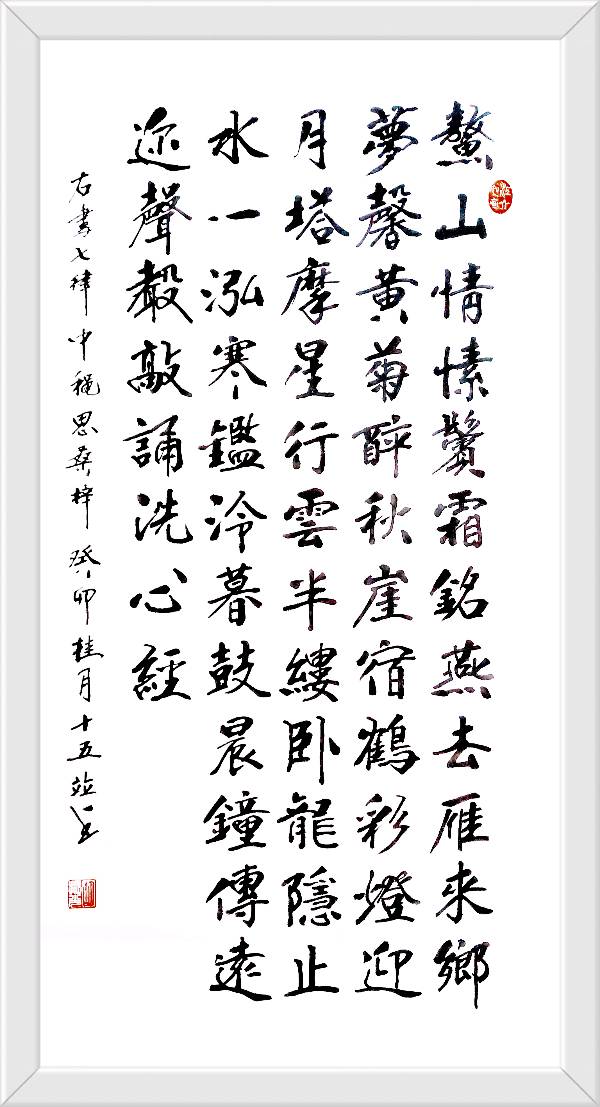 鰲山情愫鬢霜銘燕去雁来鄉
夢馨黄菊醉秋崖宿鶴彩燈迎
月塔摩星行雲半縷卧龍隱止
水一泓寒鑑泠暮鼓晨鐘傳遠
迩聲聲敲誦洗心經
右書七律中穐思桑梓癸卯桂月十五